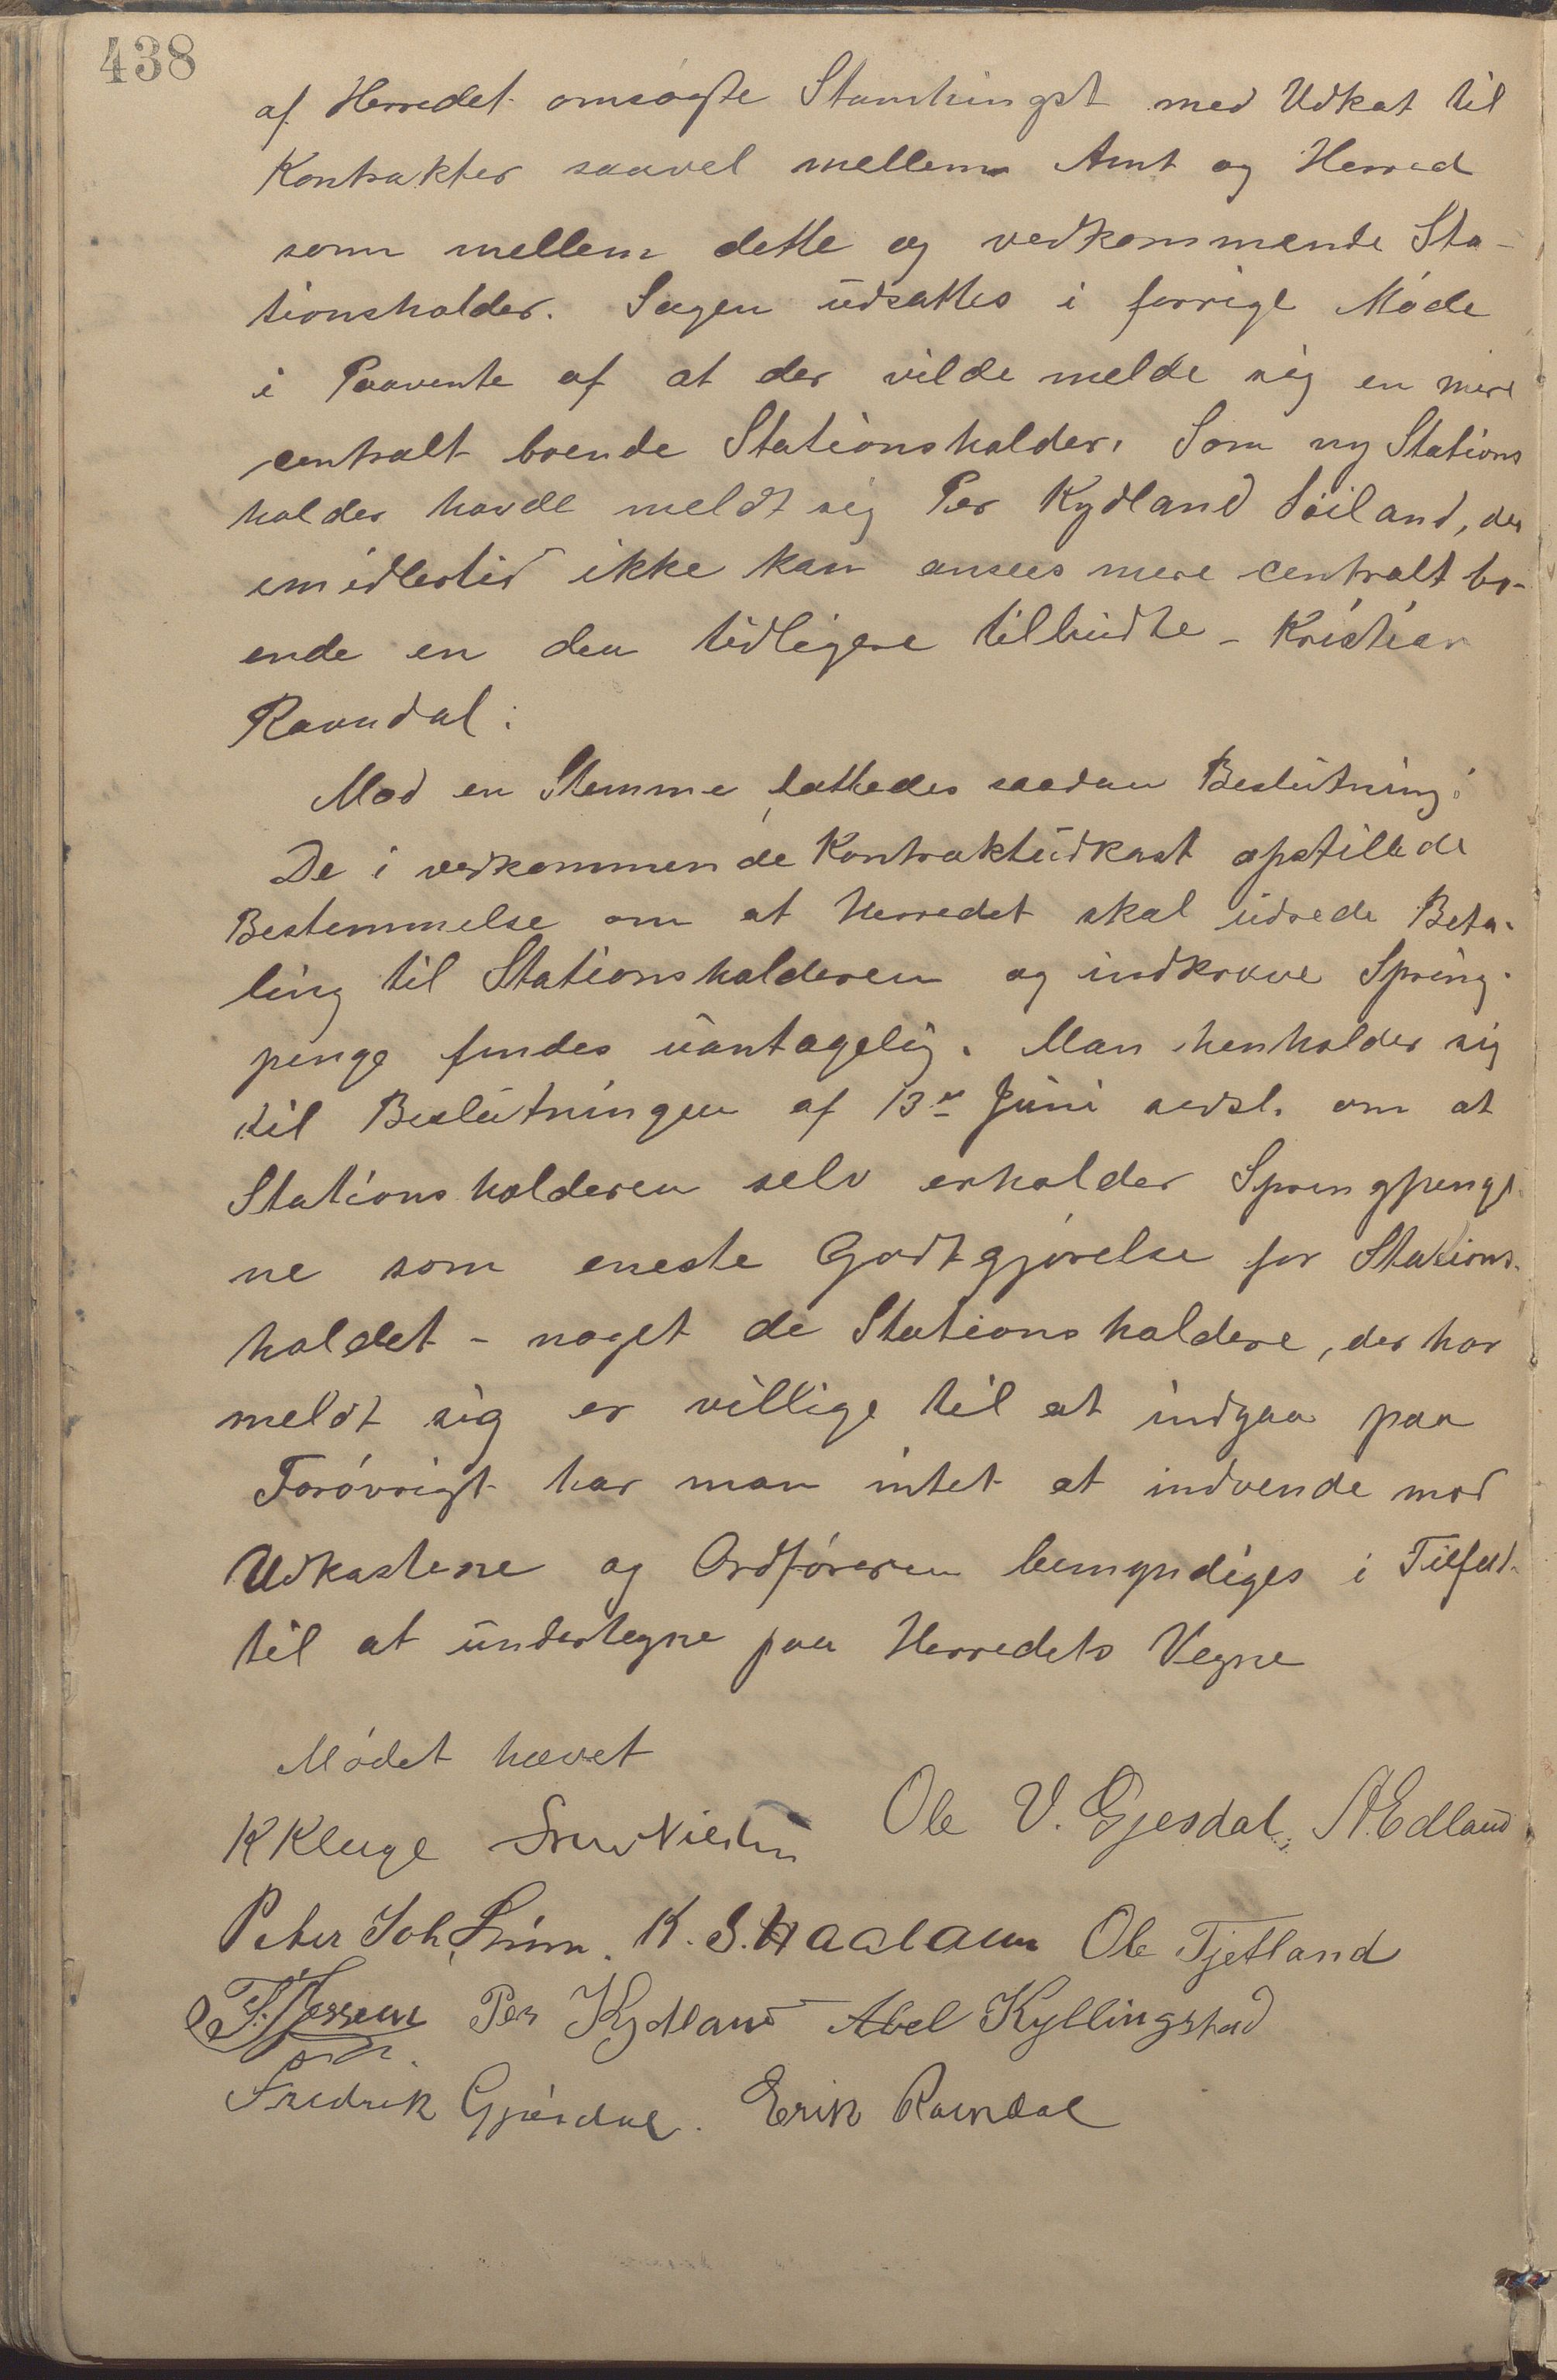 438
af Herredet omsøgte Stamhingst med Udkat til
Kontrakter saavel mellem Amt og Herred
som mellem dette og vedkommende Sta-
tionsholder. Sagen udsattes i forrige Møde
i Paavente af at der vilde melde sig en mere
centralt boende Stationsholder. Som ny Stations
holder havde meldt sig Per Kydland Søiland, der
imidlertid ikke kan ansees mere centralt bo-
ende en den tidligere tilbudte - Kristian
Ravndal.
Mod en Stemme fattedes saadan Beslutning:
De i vedkommende Kontraktudkast opstillede
Bestemmelse om at Herredet skal udrede Beta-
ling til Stationsholderen og indkræve Spring-
penge findes uantagelig. Man henholder sig
til Beslutningen af 13de Juni sidstl. om at
Stationsholderen selv erholder Springpenge-
ne som eneste Godtgjørelse for Stations-
holdet - noget de Stationsholdere, der har
meldt sig er villige til at indgaa paa
Forøvrigt har man intet at indvende mod
Udkastene og Ordføreren bemyndiges i Tilfæld-
til at undertegne paa Herredets Vegne
Mødet hævet
K Kluge Ole V. Gjesdal, A. Edland
Peter Joh K. S. Haaland Ole Tjetland
Per Kydland Abel Kyllingstad
Fredrik Gjesdal. Erik Ravndal